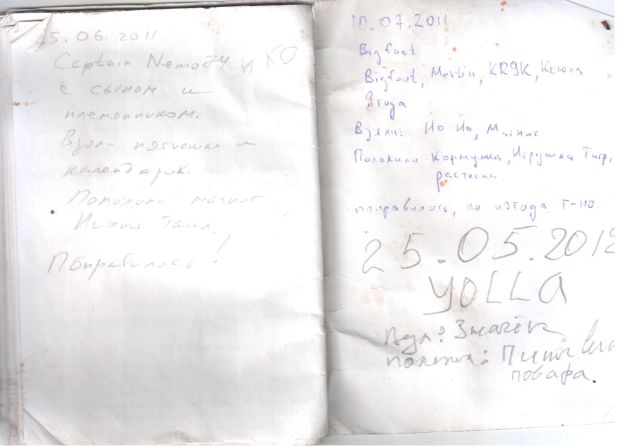 5.06.2011
Captain Nemo74 и КО
с сыном и
племянником.
Взяли пятнашки и
календарик.
Положили магнит
Нижний Тагил.
Понравилось!
10.07.2011
Bigfoot
Bigfoot, Merlin, KR9K, Ксюха
Ягода
Взяли: Йо-Йо, Магнит
Положили Кормушка, Игрушка Тигр,
расчески.
понравилось, но погода Г-НО.
25.05.2012
YOLLA
Взял: Значок
положил:
повара.